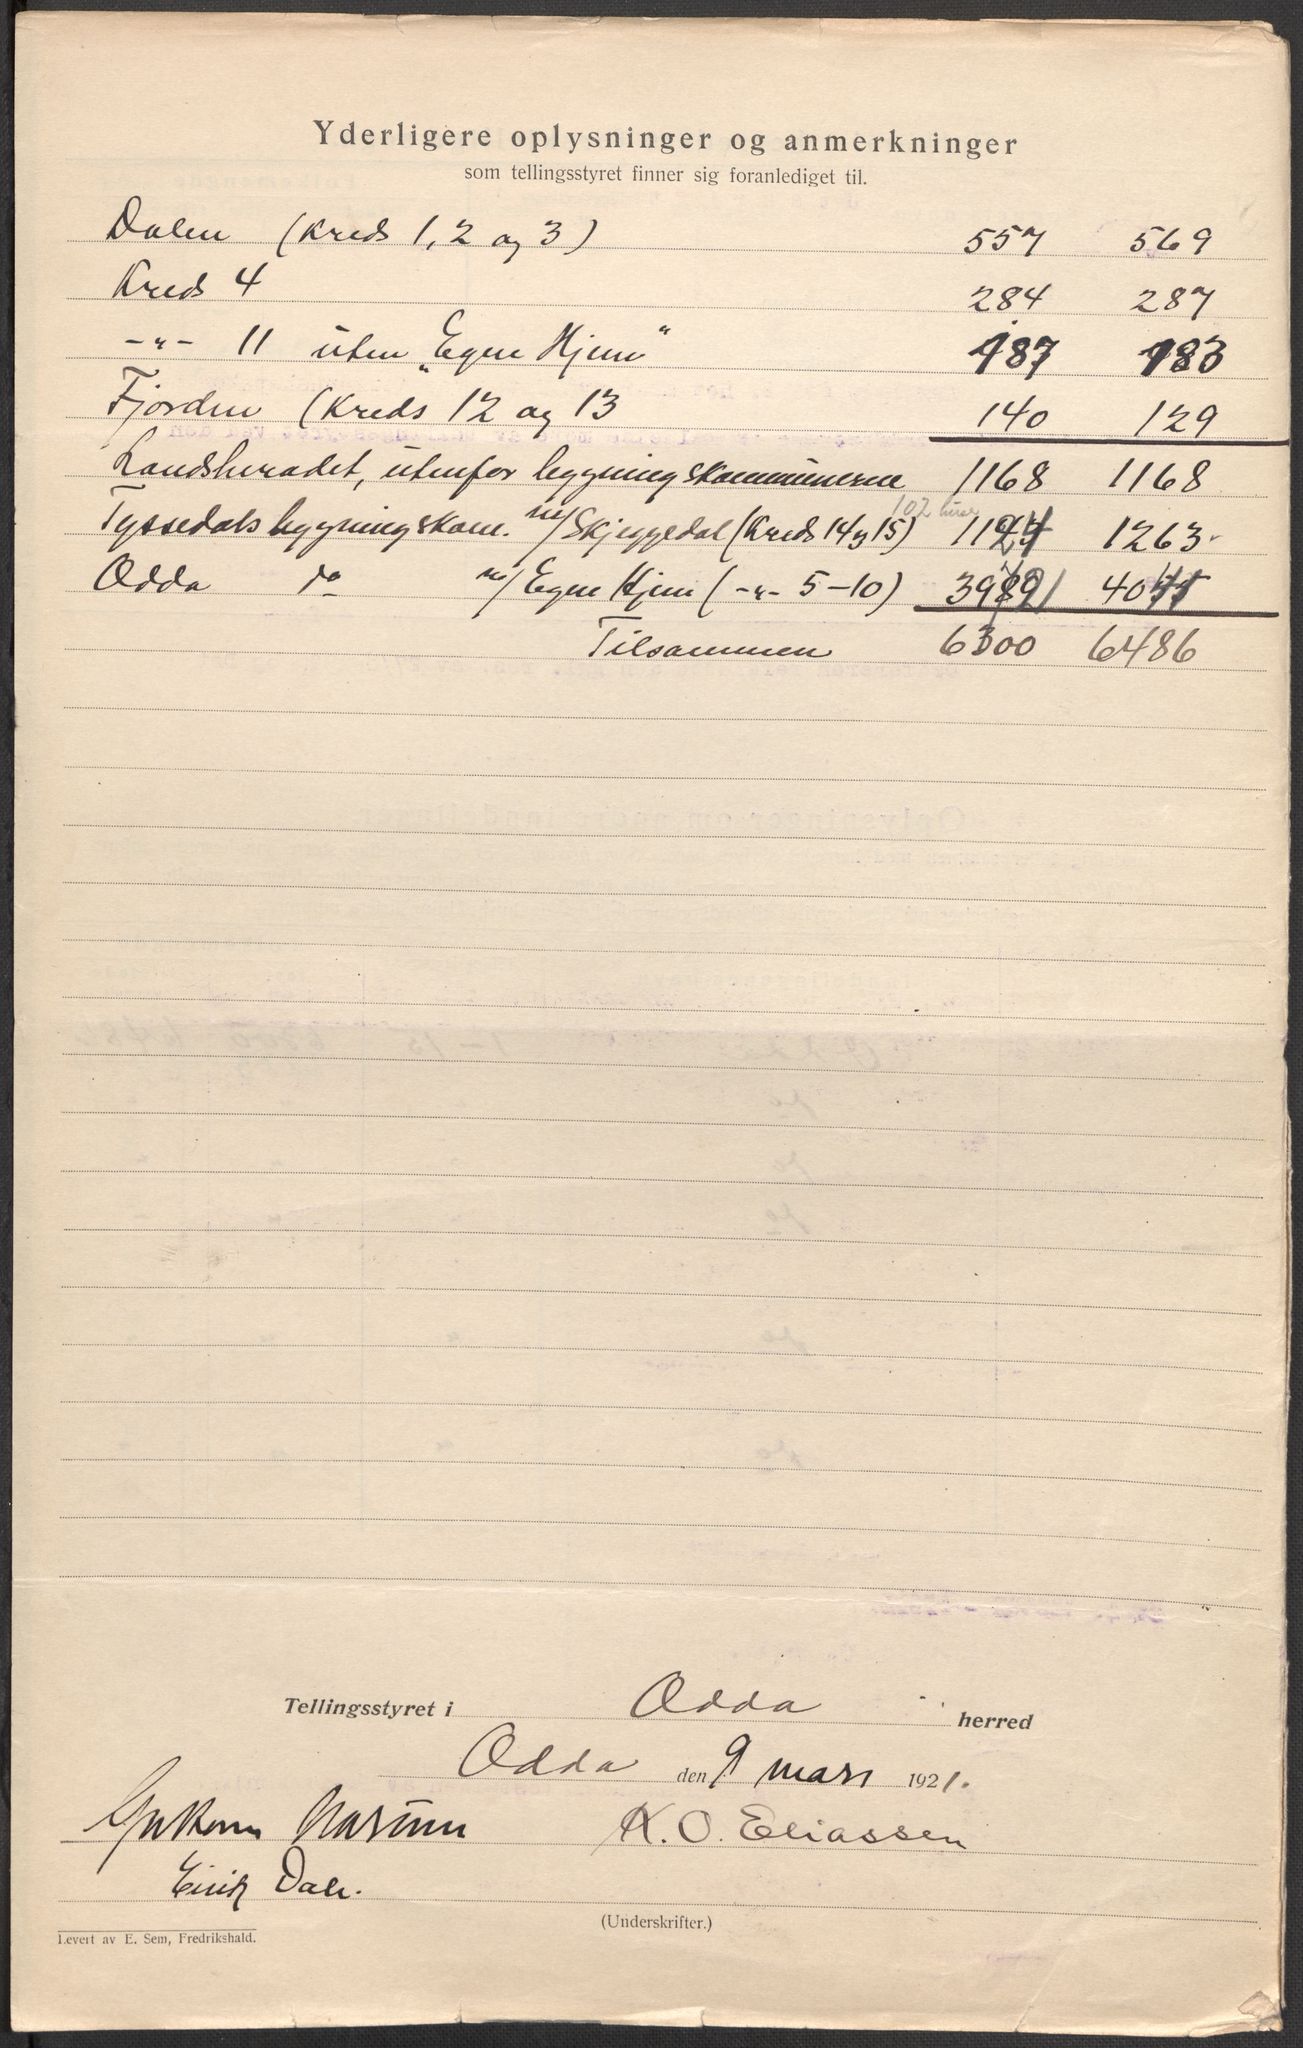 Yderligere oplysninger og anmerkninger
som tellingsstyret finner sig foranlediget til.
Dalen (Kreds 1, 2 og 3) 557 569
Kreds 4 284 287
-"- 11 uten „Egne Hjem" 187 183
Fjorden (Kreds 12 og 13 140 129
Landsheradet, utenfor bygningskommunerne 1168 1168
102 huse
Tyssedals bygningskom. m/Skjeggedal (Kreds 14 og 15) 1263
Odda do m/ Egne Hjem (-"- 5-10)
Tilsammen 6300 6486
Tellingsstyret i Odda herred
Odda den 9 mars 1921.
K. O. Eliassen
Eirik Dale.
(Underskrifter.)
Levert av E. Sem, Fredrikshald.